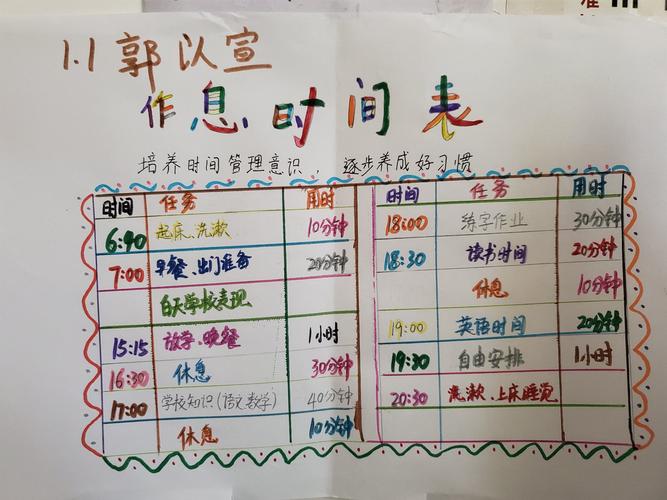 1.1 郭以宣
作息时间表
培养时间管理意识，逐步养成好习惯
时间 任务 用时
6:40 起床、洗漱 10分钟
7:00 早餐、出门准备 20分钟
白天学校表现
15:15 放学、晚餐 1小时
16:30 休息 30分钟
17:00 学校知识(语文数学) 40分钟
休息 10分钟
时间 任务 用时
18:00 练字作业 30分钟
18:30 读书时间 20分钟
休息 10分钟
19:00 英语时间 20分钟
19:30 自由安排 1小时
20:30 洗漱、上床睡觉